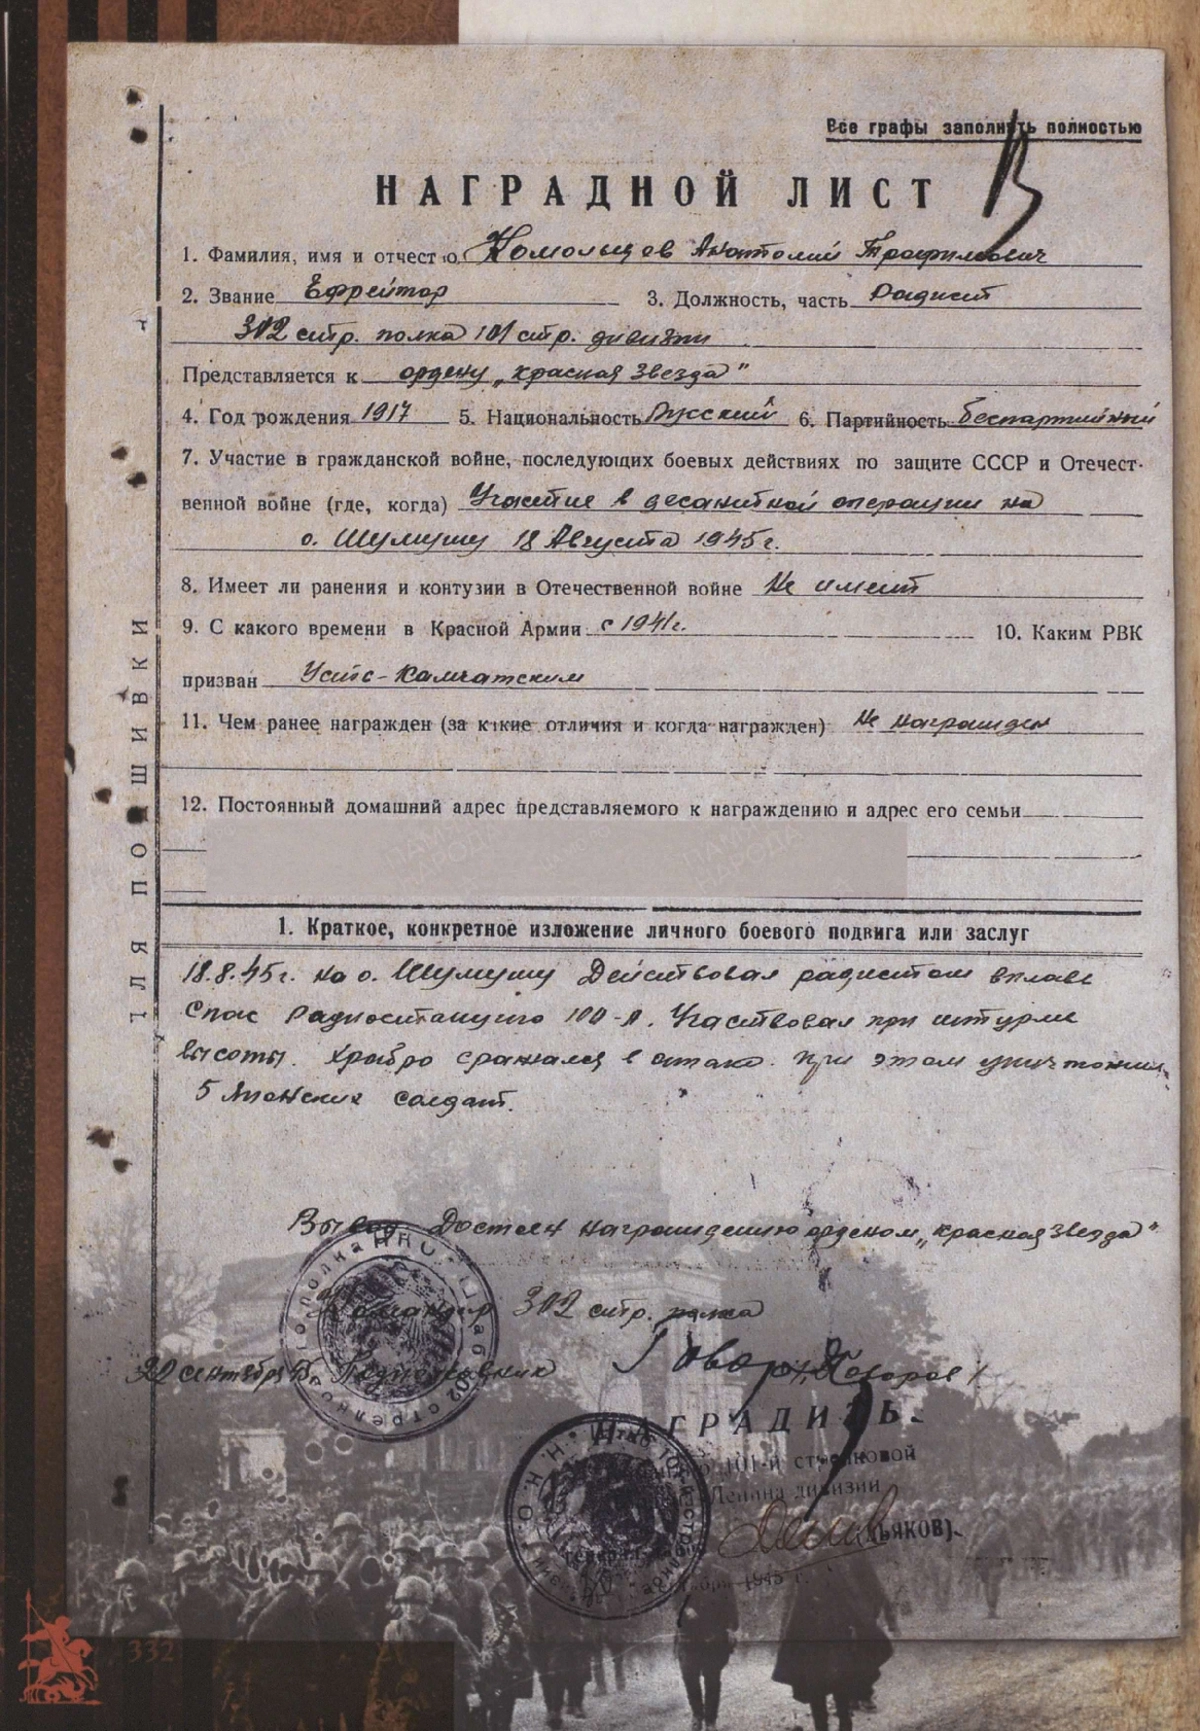 Все графы заполнять полностью
НАГРАДНОЙ ЛИСТ
1. Фамилия, имя и отчество Комольцев Анатолий Трофимович
2. Звание Ефрейтор 3. Должность, часть Радист
302 стр. полка 101 стр. дивизии
Представляется к ордену „Красная Звезда"
4. Год рождения 1917 5. Национальность Русский 6. Партийность беспартийный
7. Участие в гражданской войне, последующих боевых действиях по защите СССР и Отечест-
венной войне (где, когда) Участие в десантной операции на
о. Шумушу 18 Августа 1945 г.
8. Имеет ли ранения и контузии в Отечественной войне Не имеет
9. С какого времени в Красной Армии с 1941 г. 10. Каким РВК
призван Усть-Камчатским
11. Чем ранее награжден (за какие отличия и когда награжден) Не награжден
12. Постоянный домашний адрес представляемого к награждению и адрес его семьи
ДЛЯ ПОДШИВКИ
1. Краткое, конкретное изложение личного боевого подвига или заслуг
18.8.45 г. на о. Шумушу Действовал радистом вплавь
Спас Радиостанцию 100-А. Участвовал при штурме
высоты. Храбро сражался в атаке. При этом уничтожил
5 Японских солдат.
Вывод Достоен награждению орденом „Красная Звезда"
Командир 302 стр. полка
22 сентября 45 Подполковник Говоров
НАГРАДИТЬ
101-й стрелковой
Ленина дивизии
ЬЯКОВ)
1945 г.
332